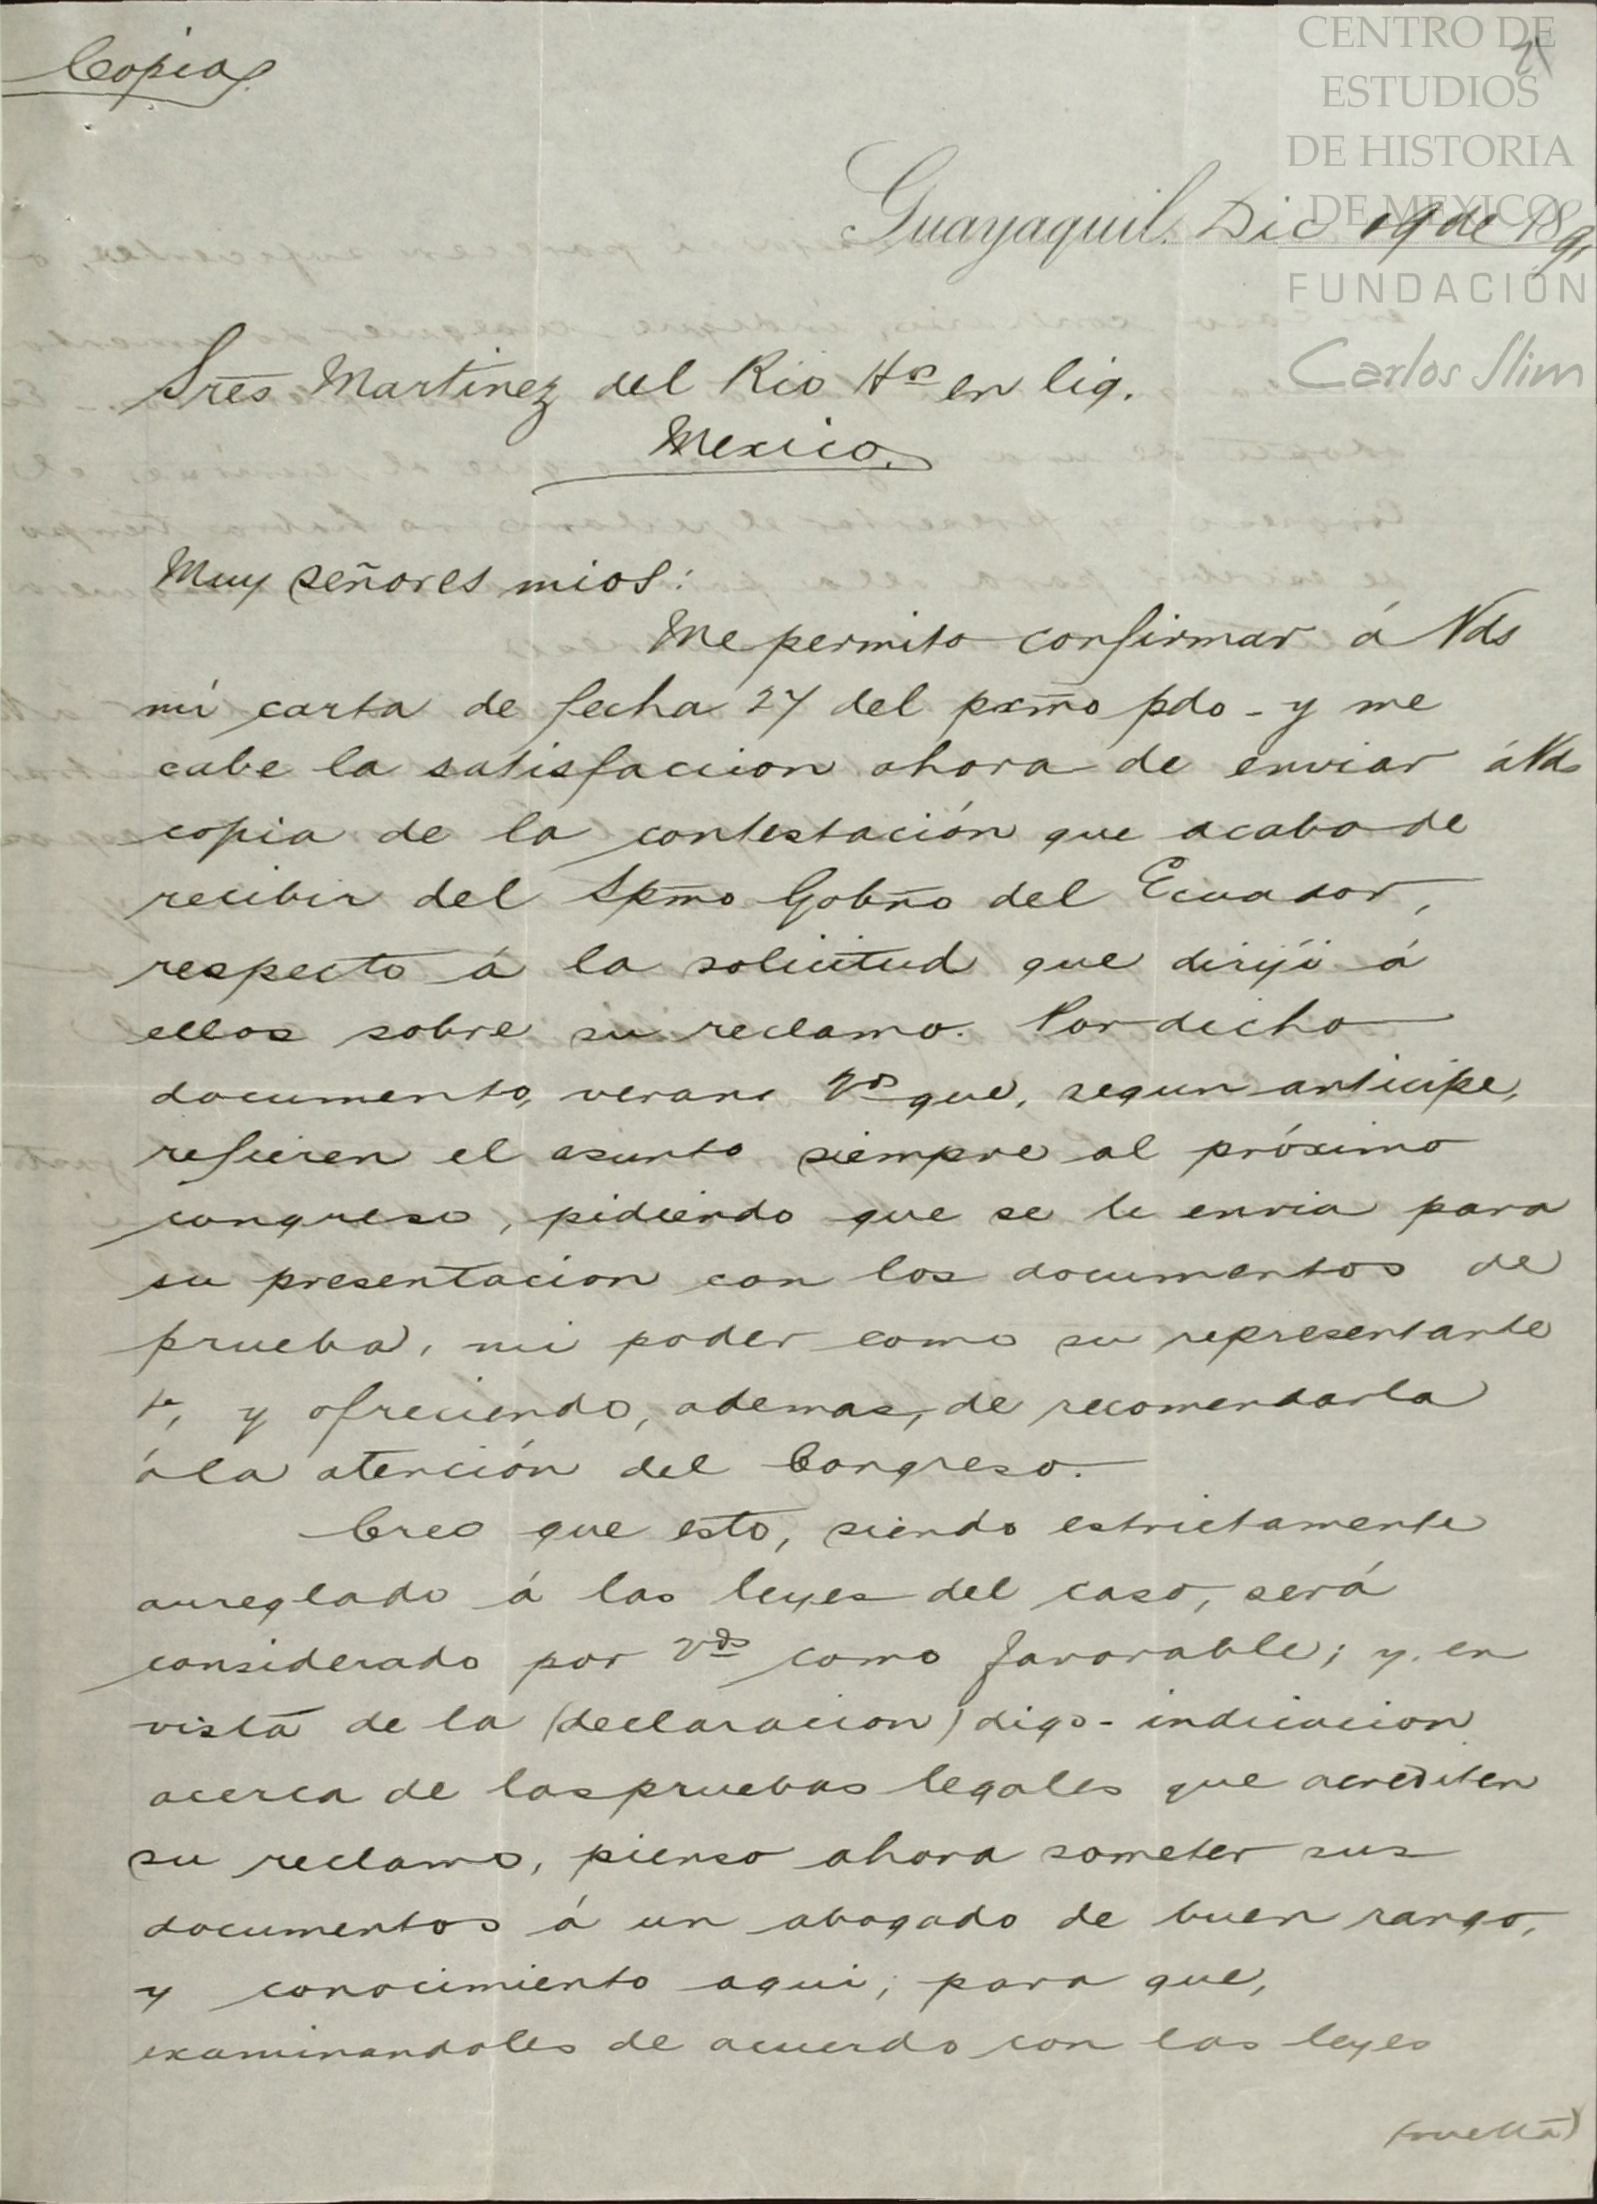 Copia
CENTRO DE
ESTUDIOS
DE HISTORIA
DE MEXICO
FUNDACIÓN
Carlos Slim
Guayaquil. Dic 19 de 1891
Sres Martinez del Rio Hos en liq.
Mexico.
Muy señores mios:
Me permito confirmar á Vds
mi carta de fecha 27 del pxmo pdo - y me
cabe la satisfaccion ahora de enviar á Vds
copia de la contestación que acabo de
recibir del Spmo Gobno del Ecuador,
respecto á la solicitud que diriji á
ellos sobre su reclamo. Por dicho
documento, veran Vds que, segun anticipe,
refieren el asunto siempre al próximo
congreso, pidiendo que se le envia para
su presentacion con los documentos de
prueba, mi poder como su representante
te, y ofreciendo, ademas, de recomendarla
á la atención del Congreso.
Creo que esto, siendo estrictamente
arreglado á las leyes del caso, será
considerado por Vds como favorable; y en
vista de la (declaracion) digo - indicacion
acerca de las pruebas legales que acrediten
su reclamo, pienso ahora someter sus
documentos á un abogado de buen rango,
y conocimiento aqui; para que,
examinandoles de acuerdo con las leyes
(vuelta)